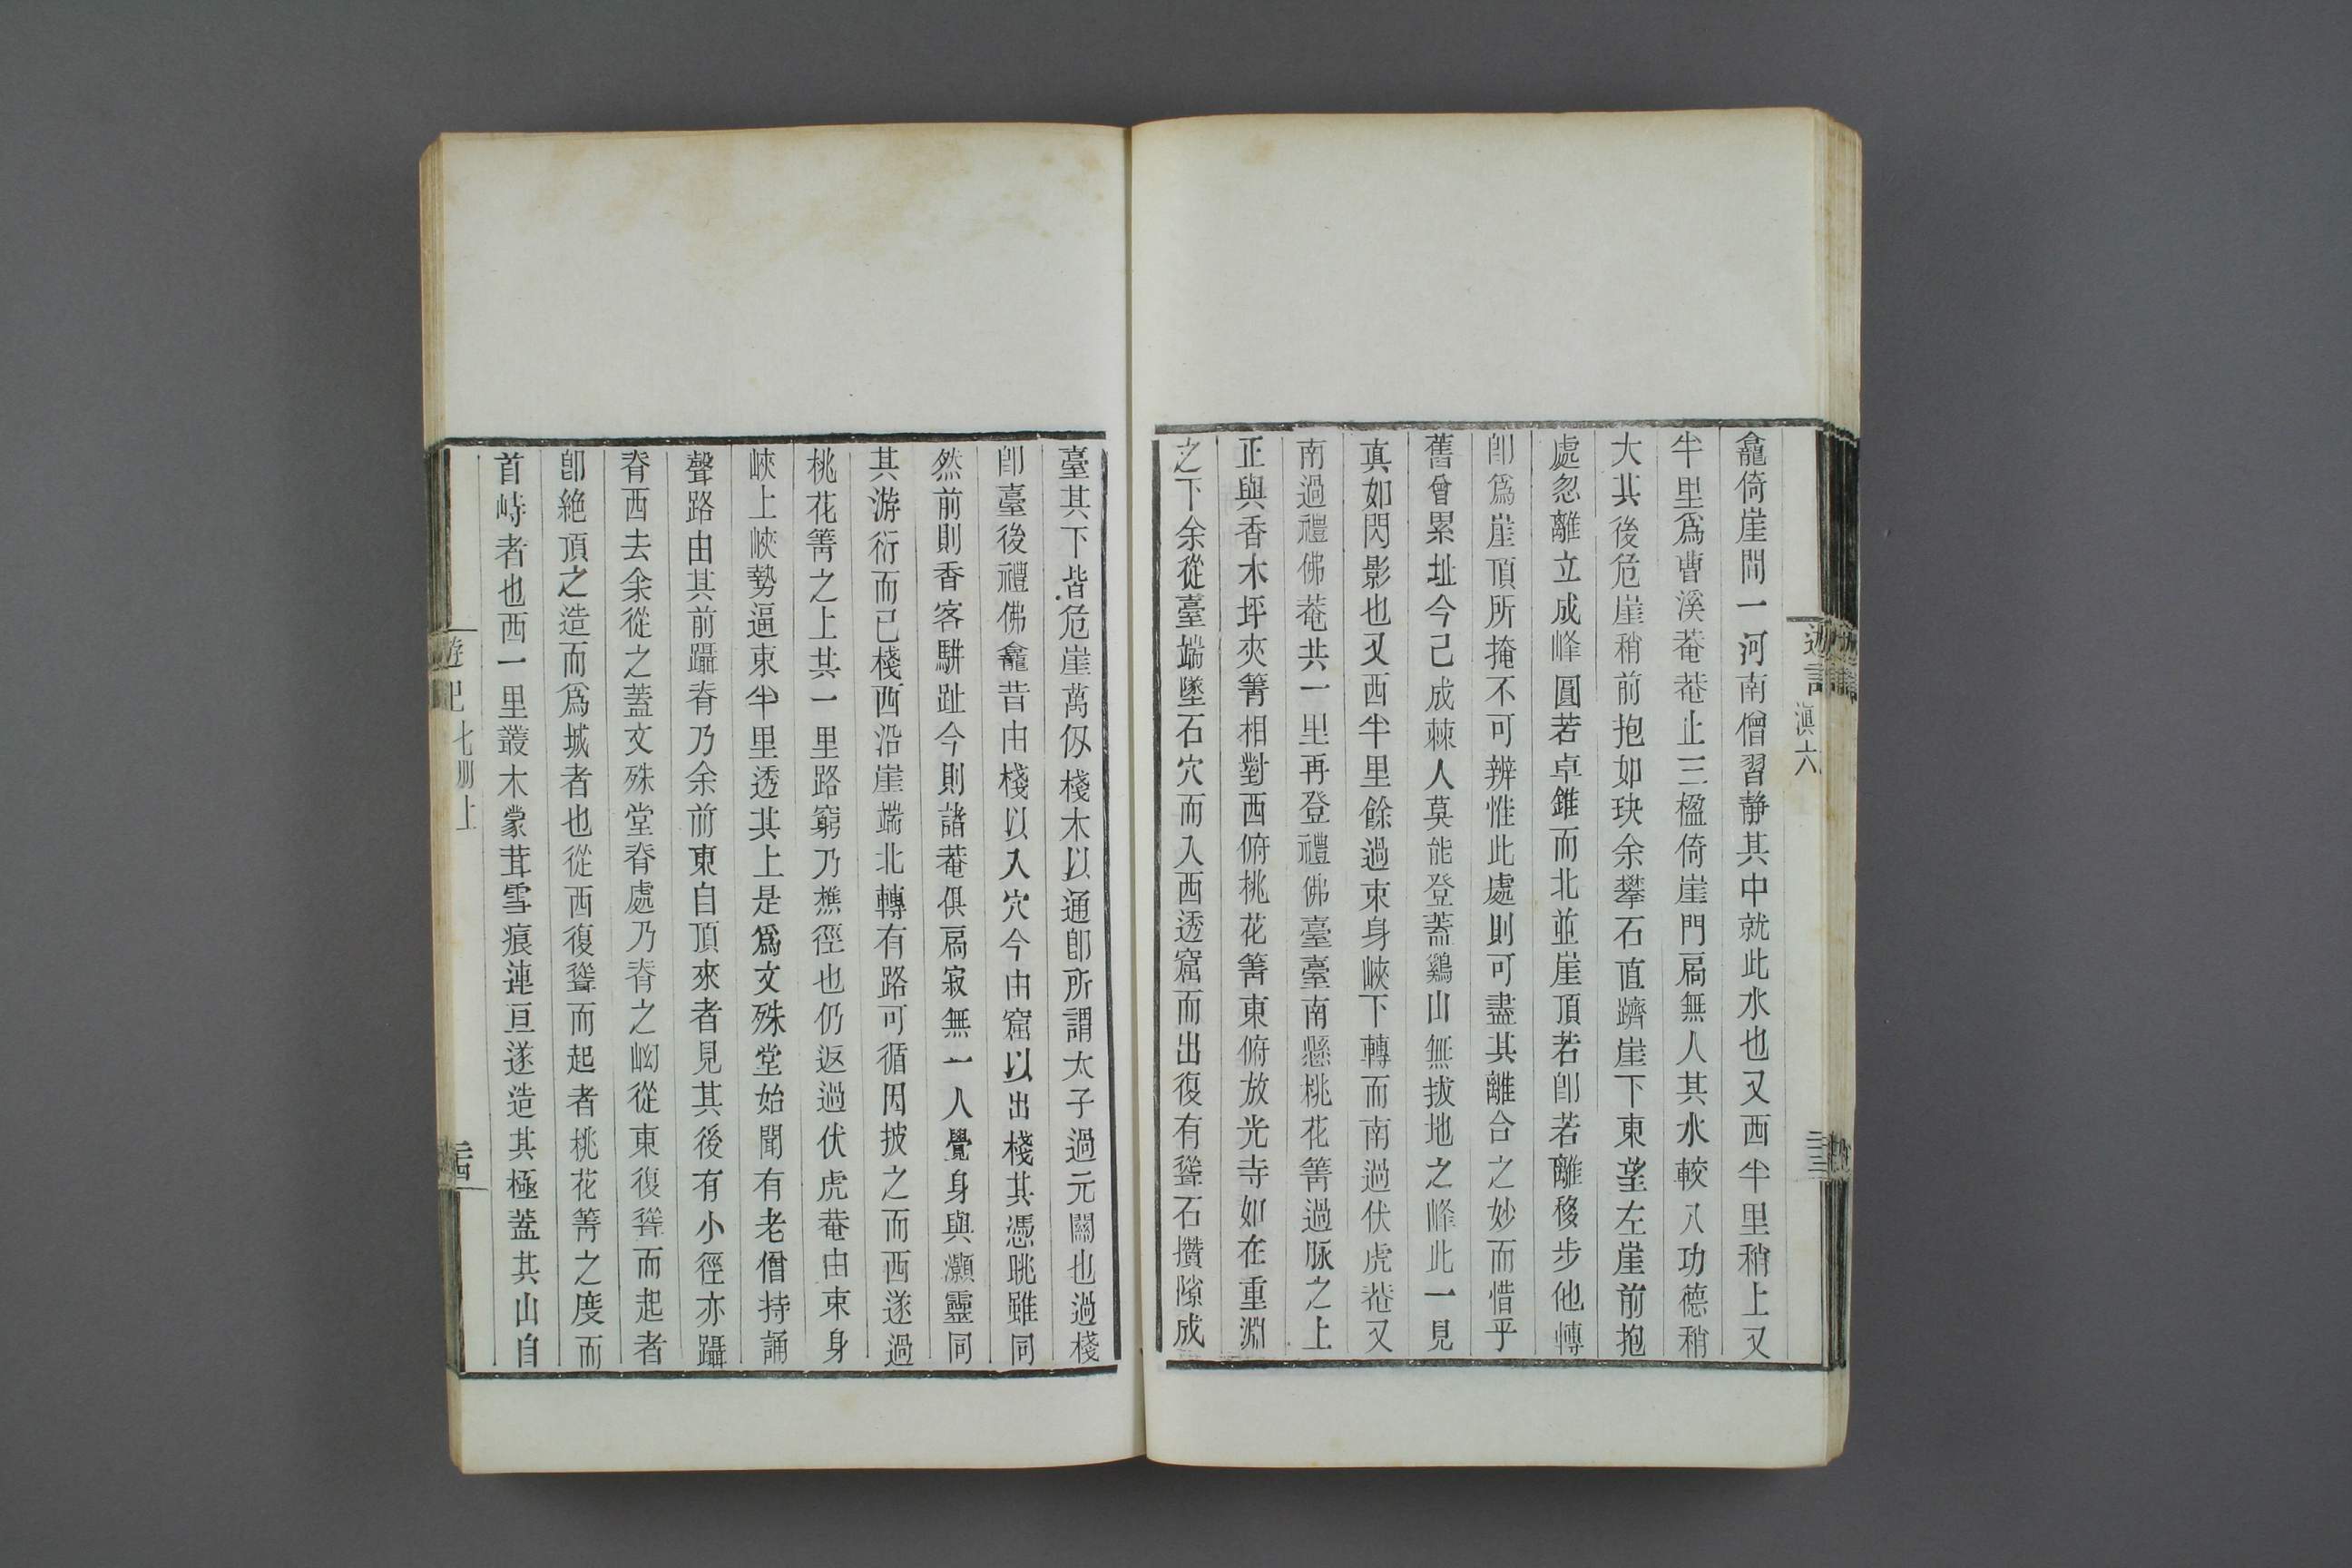 遊記
滇六
龕倚崖間一河南僧習靜其中就此水也又西半里稍上又
半里爲曹溪菴菴止三楹倚崖門扃無人其水較八功德稍
大其後危崖稍前抱如玦余攀石直躋崖下東望左崖前抱
處忽離立成峰圓若卓錐而北並崖頂若卽若離移步他轉
卽爲崖頂所掩不可辨惟此處則可盡其離合之妙而惜乎
舊曾累址今已成棘人莫能登蓋鷄山無拔地之峰此一見
真如閃影也又西半里餘過束身峽下轉而南過伏虎菴又
南過禮佛菴共一里再登禮佛臺臺南懸桃花箐過脉之上
正與香木坪夾箐相對西俯桃花箐東俯放光寺如在重淵
之下余從臺端墜石穴而入西透窟而出復有聳石攢隙成
臺其下皆危崖萬仭棧木以通卽所謂太子過元關也過棧
卽臺後禮佛龕昔由棧以入穴今由窟以出棧其憑眺雖同
然前則香客駢趾今則諸菴俱扃寂無一人覺身與灝靈同
其游衍而已棧西沿崖端北轉有路可循因披之而西遂過
桃花箐之上共一里路窮乃樵徑也仍返過伏虎菴由束身
峽上峽勢逼束半里透其上是爲文殊堂始聞有老僧持誦
聲路由其前躡脊乃余前東自頂來者見其後有小徑亦躡
脊西去余從之蓋文殊堂脊處乃脊之㘭從東復聳而起者
卽絶頂之造而爲城者也從西復聳而起者桃花箐之度而
首峙者也西一里叢木蒙茸雪痕連亘遂造其極蓋其山自
遊記七册上